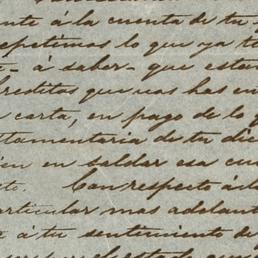 nte á la cuenta de tu
repetimos lo que ya t
te- á saber- que esta
creditos que nos has en
carta, en pago de lo q
tamentaria de tu die
ien en saldar esa cu
to. Con respecto á l
articular mas adelant
e á tu sentimiento de